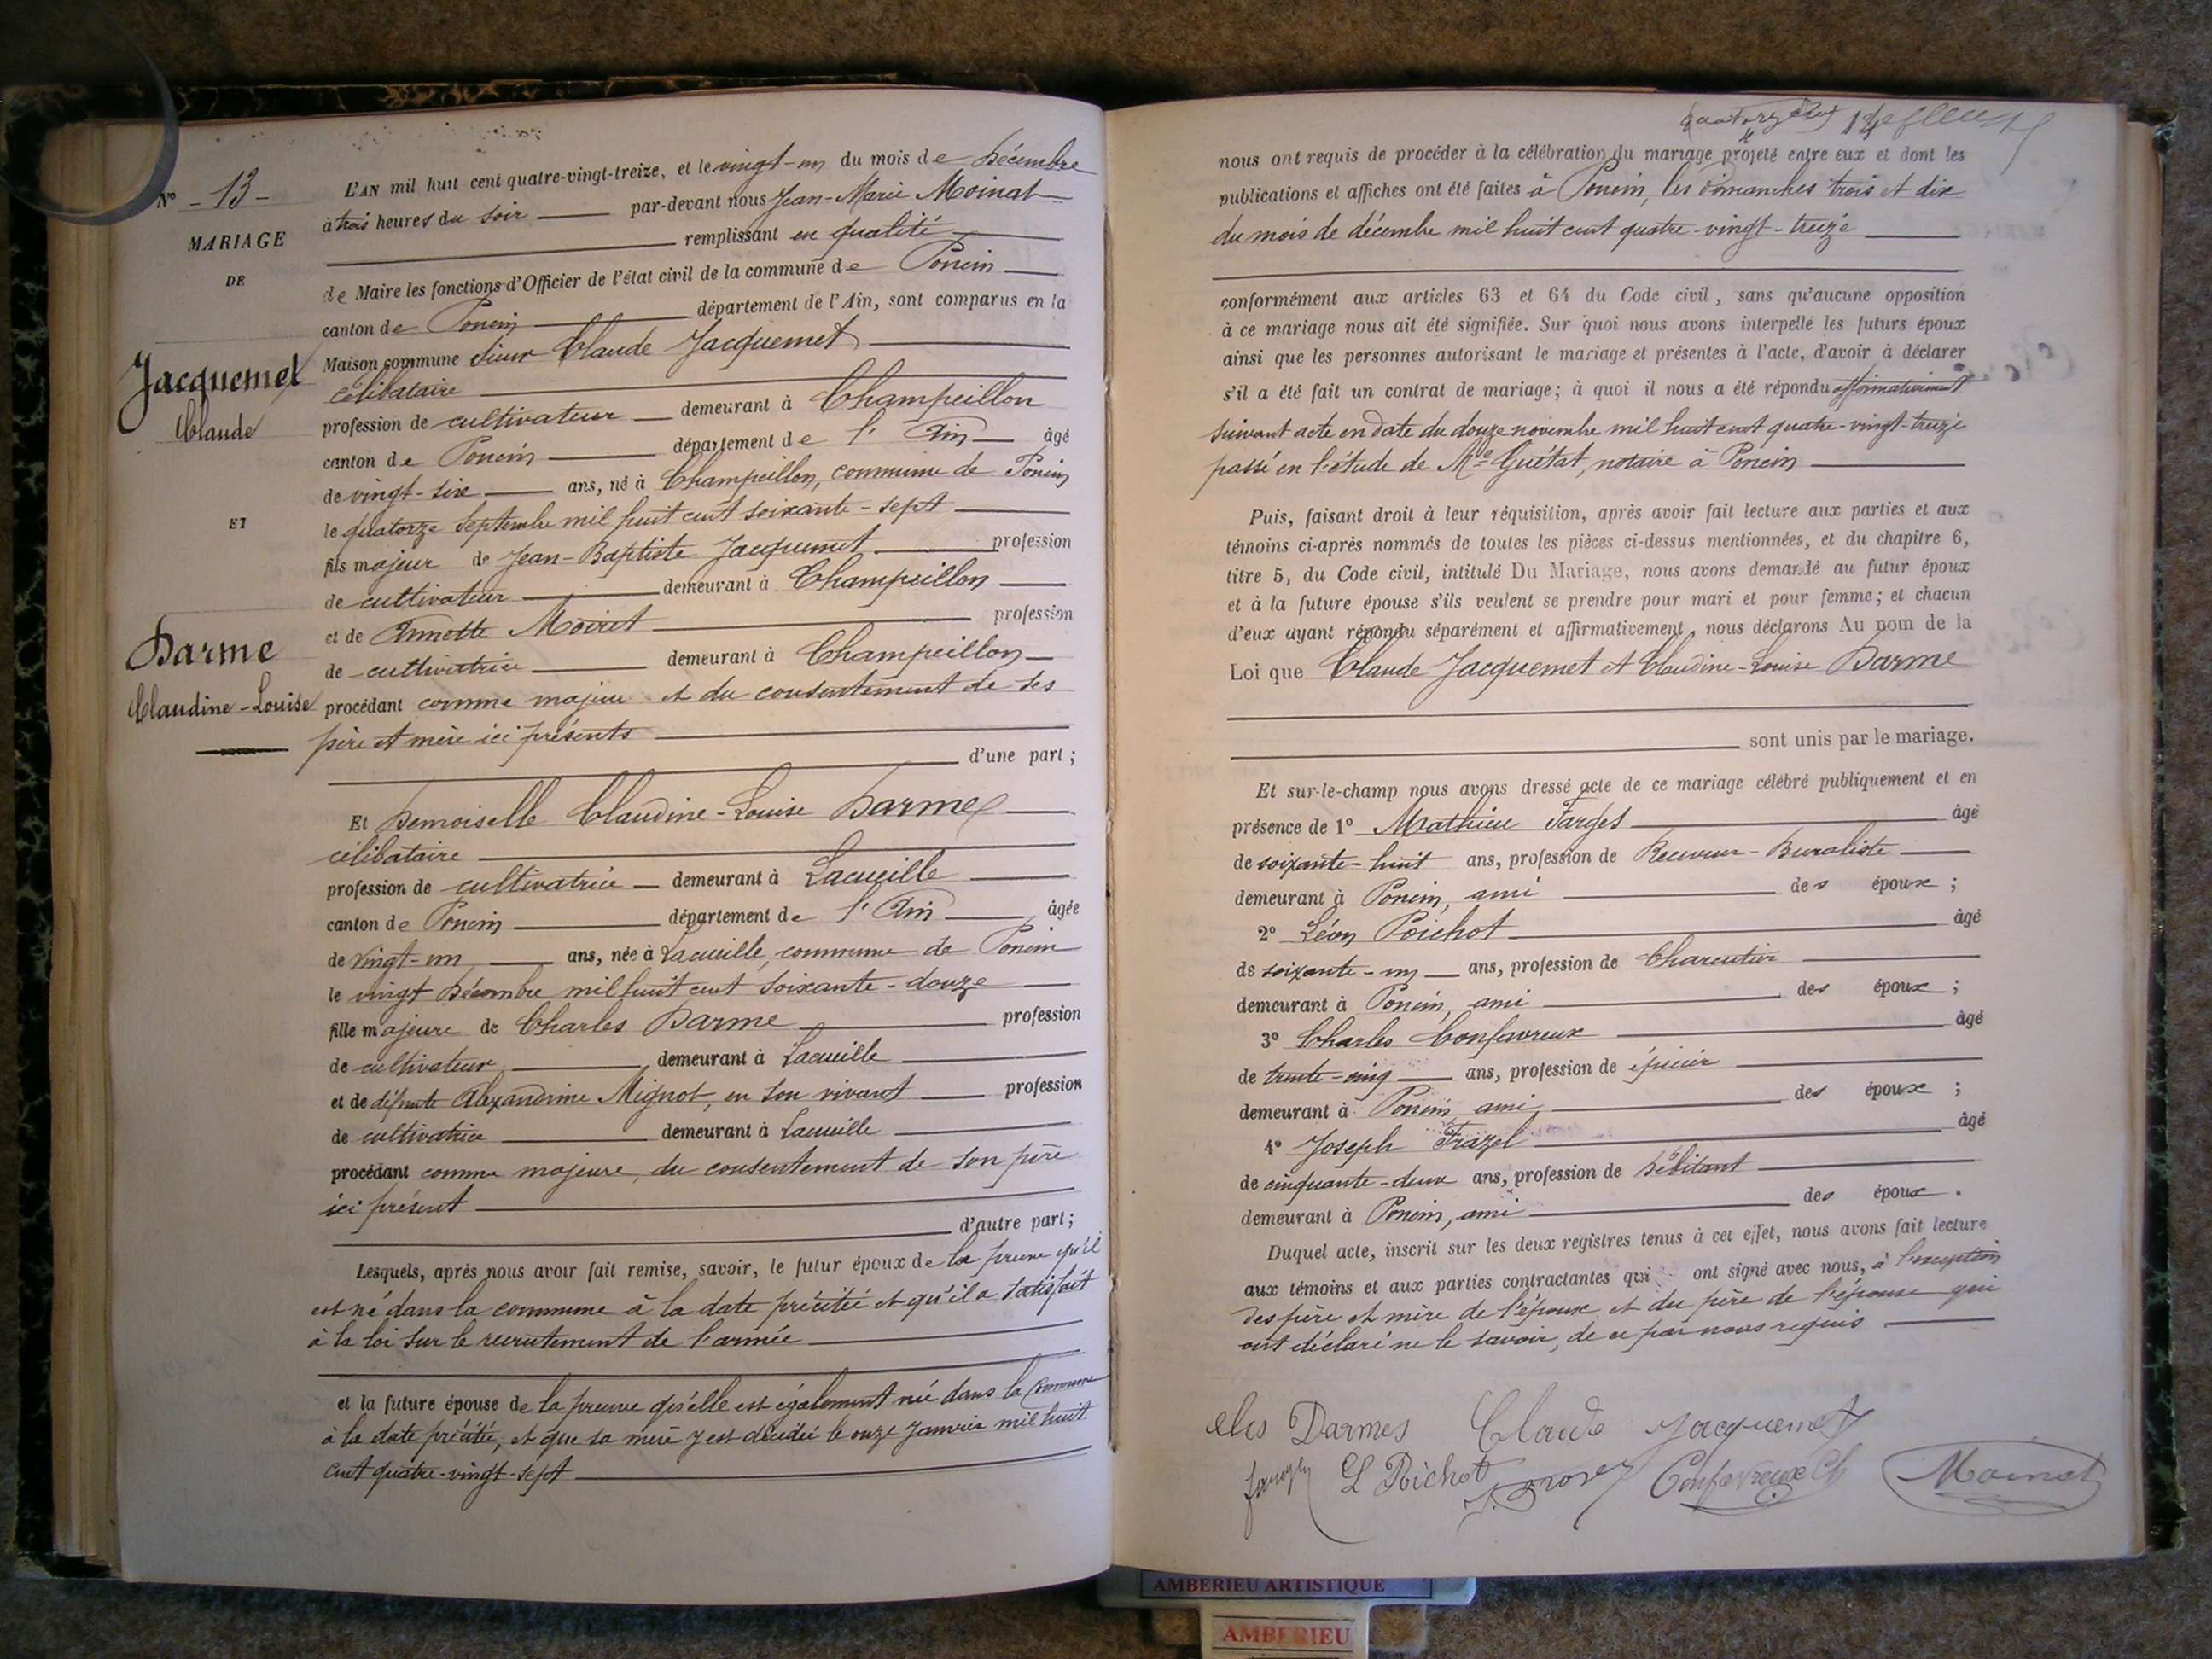 N° - 13 -
MARIAGE
DE
Jacquemet
Claude
ET
Darme
Claudine-Louise
L'AN mil huit cent quatre-vingt-treize, et le vingt-un du mois de Décembre
à trois heures du soir par-devant nous Jean-Marie Moinat
remplissant en qualité
de Maire les fonctions d'Officier de l'état civil de la commune de Poncin
canton de Poncin département de l'Ain, sont comparus en la
Maison commune Sieur Claude Jacquemet
célibataire
profession de cultivateur demeurant à Champeillon
canton de Poncin département de l'Ain âgé
de vingt-six ans, né à Champeillon, commune de Poncin
le quatorze Septembre mil huit cent soixante-sept
fils majeur de Jean-Baptiste Jacquemet profession
de cultivateur demeurant à Champeillon
et de Annette Moiret profession
de cultivatrice demeurant à Champeillon
procédant comme majeur et du consentement de ses
père et mère ici présents
d'une part;
Et Demoiselle Claudine-Louise Darme
célibataire
profession de cultivatrice demeurant à Lacueille
canton de Poncin département de l'Ain âgée
de vingt-un ans, née à Lacueille, commune de Poncin
le vingt Décembre mil huit cent soixante-douze
fille majeure de Charles Darme profession
de cultivateur demeurant à Lacueille
et de défunte Alexandrine Mignot, en son vivant profession
de cultivatrice demeurant à Lacueille
procédant comme majeure, du consentement de son père
ici présent
d'autre part;
Lesquels, après nous avoir fait remise, savoir, le futur époux de la preuve qu'il
est né dans la commune à la date précitée et qu'il a satisfait
à la loi sur le recrutement de l'armée
et la future épouse de la preuve qu'elle est également née dans la commune
à la date précitée, et que sa mère y est décédée le onze Janvier mil huit
cent quatre-vingt-sept
nous ont requis de procéder à la célébration du mariage projeté entre eux et dont les
publications et affiches ont été faites à Poncin, les dimanches trois et dix
du mois de décembre mil huit cent quatre-vingt-treize
conformément aux articles 63 et 64 du Code civil, sans qu'aucune opposition
à ce mariage nous ait été signifiée. Sur quoi nous avons interpellé les futurs époux
ainsi que les personnes autorisant le mariage et présentes à l'acte, d'avoir à déclarer
s'il a été fait un contrat de mariage; à quoi il nous a été répondu affirmativement
suivant acte en date du douze novembre mil huit cent quatre-vingt-treize
passé en l'étude de Me Guétat, notaire à Poncin
Puis, faisant droit à leur réquisition, après avoir fait lecture aux parties et aux
témoins ci-après nommés de toutes les pièces ci-dessus mentionnées, et du chapitre 6,
titre 5, du Code civil, intitulé Du Mariage, nous avons demandé au futur époux
et à la future épouse s'ils veulent se prendre pour mari et pour femme; et chacun
d'eux ayant répondu séparément et affirmativement, nous déclarons Au nom de la
Loi que Claude Jacquemet et Claudine-Louise Darme
sont unis par le mariage.
Et sur-le-champ nous avons dressé acte de ce mariage célébré publiquement et en
présence de 1° Mathieu Farges âgé
de soixante-huit ans, profession de Receveur-Buraliste
demeurant à Poncin, ami des époux;
2° Léon Poichot âgé
de soixante-un ans, profession de Charcutier
demeurant à Poncin, ami des époux;
3° Charles Confavreux âgé
de trente-cinq ans, profession de épicier
demeurant à Poncin, ami des époux;
4° Joseph âgé
de cinquante-deux ans, profession de Débitant
demeurant à Poncin, ami des époux.
Duquel acte, inscrit sur les deux registres tenus à cet effet, nous avons fait lecture
aux témoins et aux parties contractantes qui ont signé avec nous, à l'exception
des père et mère de l'époux et du père de l'épouse qui
ont déclaré ne le savoir, de ce par nous requis
Darmes Claude Jacquemet
L Poichot Confavreux Ch Moinat
AMBERIEU ARTISTIQUE
AMBERIEU